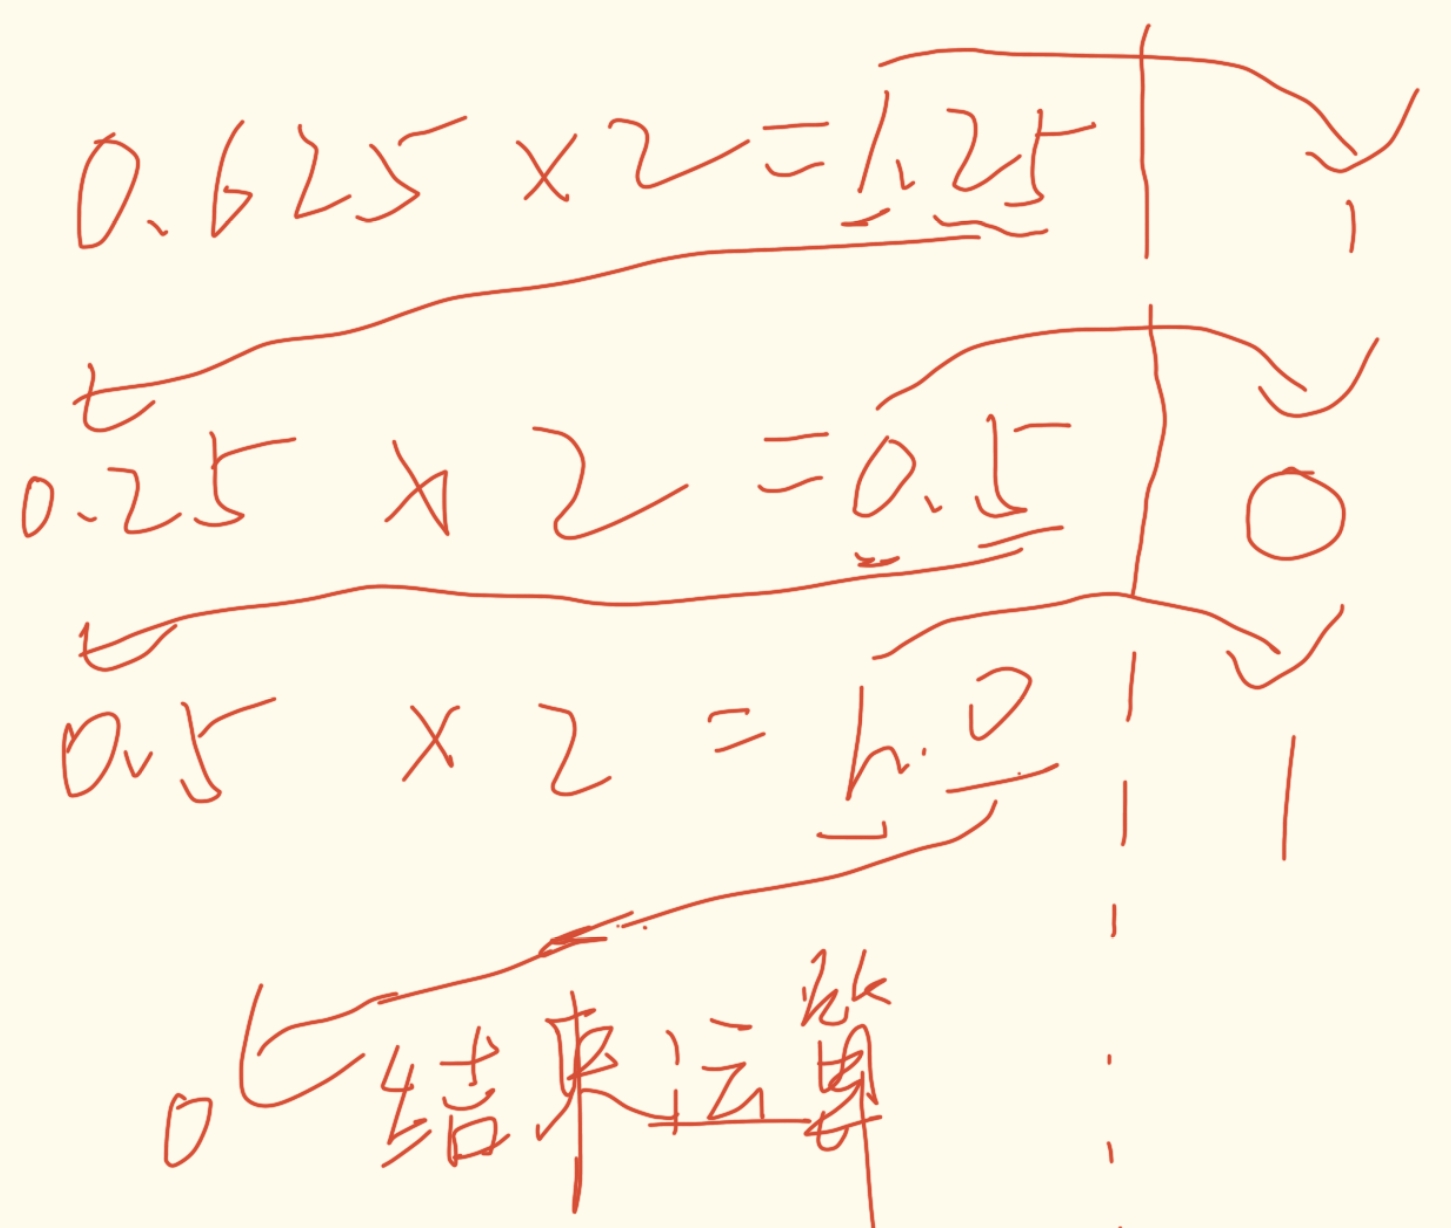 0.625 × 2 = 1.25 1
0.25 × 2 = 0.5 0
0.5 × 2 = 1.0 1
0 结束运算